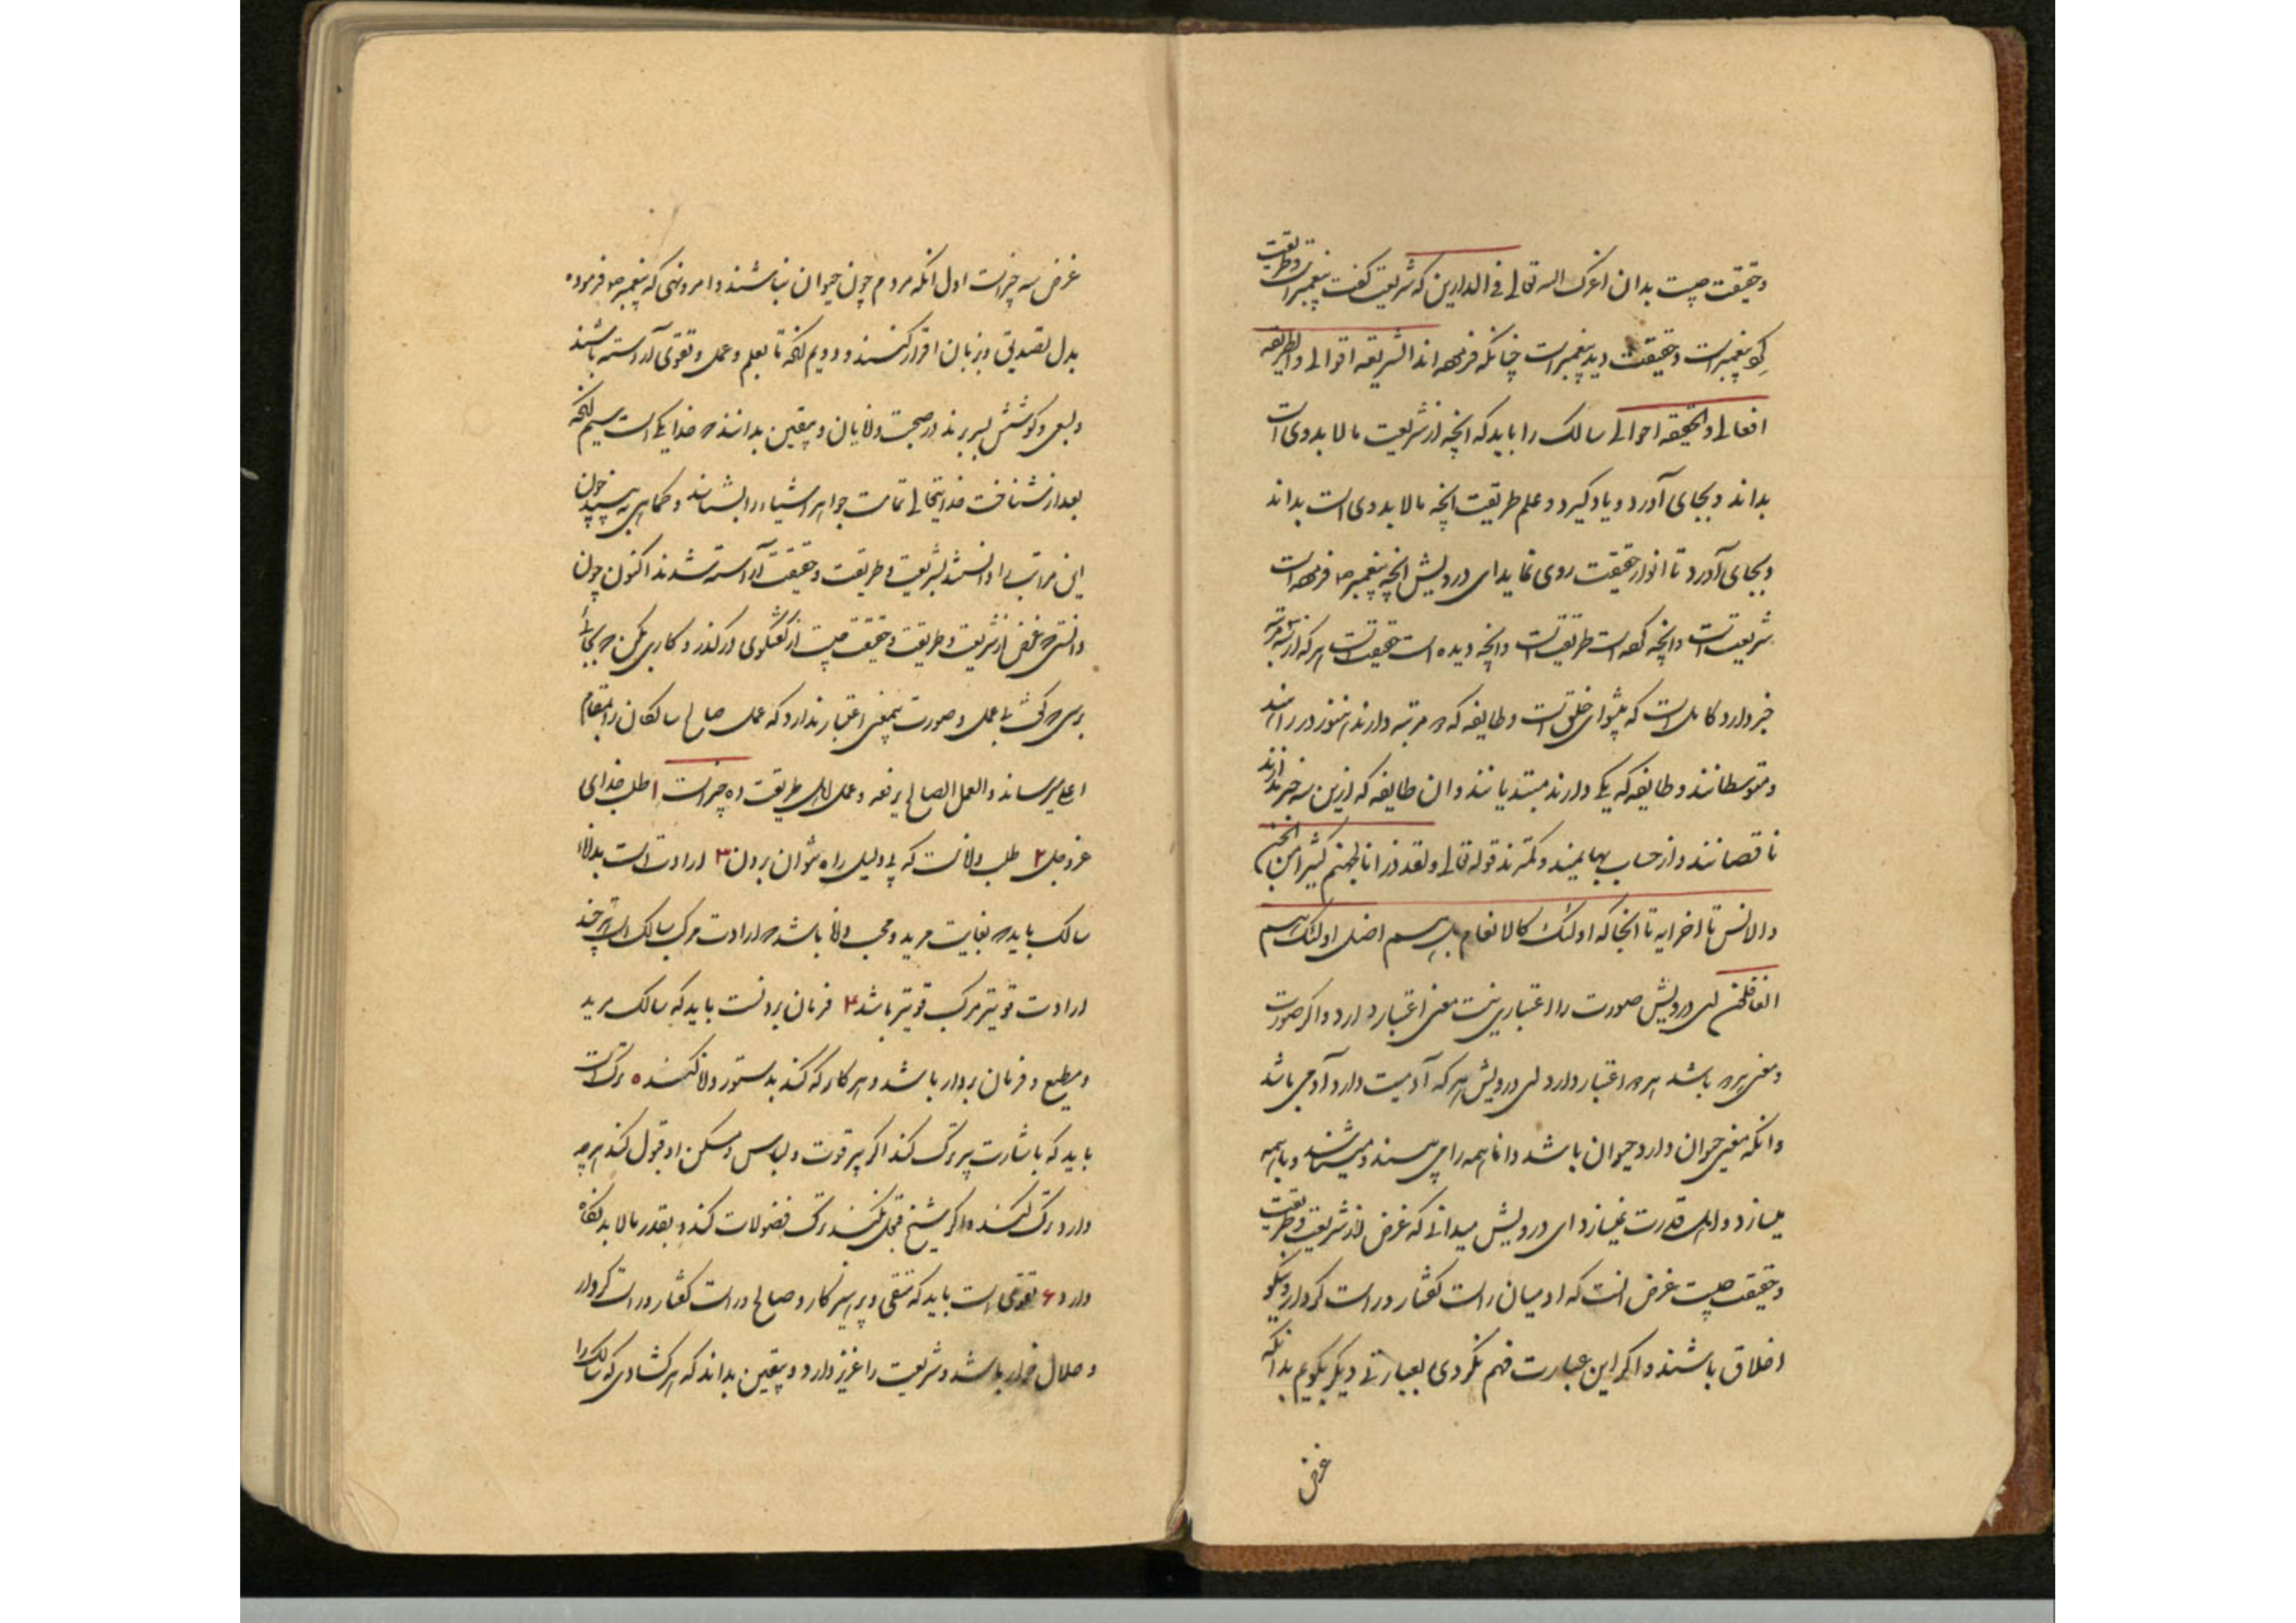 و حقیقت چیست بدان اعزک الله تعالی فی الدارین که شریعت کفت پیغمبراست و طریقت
کرد پیغمبراست و حقیقت دید پیغمبراست چنانکه فرموده اند الشریعه اقوالی والطریقه
افعالی والحقیقه احوالی سالک را باید که انچه از شریعت مالا بد وی است
بداند و بجای آورد و یاد کیرد و علم طریقت انچه مالا بد وی است بداند
و بجای آورد تا انوار حقیقت روی نماید ای درویش انچه پیغمبر ص فرموده است
شریعتست وانچه کرده است طریقتست وانچه دیده است حقیقتست هر که از سه مرتبه
خبر دارد کامل است که پیشوای خلق است و طایفه که دو مرتبه دارند هنوز در راه اند
و متوسطانند و طایفه که یکی دارند مبتدیانند و ان طایفه که ازین سه خبر ندارند
ناقصانند و از حساب بهایمند و کمترند قوله تعالی ولقد ذرانا لجهنم کثیرا من الجن
والانس تا اخر ایه تا انجا که اولئک کالانعام بل هم اضل اولئک هم
الغافلون ای درویش صورت را اعتباری نیست معنی اعتبار دارد و اکر صورت
و معنی هر دو باشد هر دو اعتبار دارد ای درویش هر که آدمیت دارد آدمی باشد
وانکه معنی حیوان دارد حیوان باشد دانا همه را می بیند و میشناسد و با همه
میسازد و اهل قدرت نمیسازد ای درویش میدانی که غرض از شریعت و طریقت
و حقیقت چیست غرض انست که ادمیان راست کفتار و راست کردار و نیکو
اخلاق باشند و اکر این عبارت فهم نکردی بعبارتی دیکر بکویم بدانکه
غرض
غرض سه چیزاست اول انکه مردم چون حیوان نباشند و امر و نهی که پیغمبر ص فرموده
بدل تصدیق و بزبان اقرار کنند و دویم انکه تا بعلم و عمل و تقوی آراسته باشند
و بسعی و کوشش بسر برند در صحبت دانایان و بیقین بدانند که خدا یکی است سیم انکه
بعد از شناخت خدایتعالی تمامت جواهر اشیاء را بشناسند و کماهی به بینند چون
این مراتب را دانستند بشریعت و طریقت و حقیقت آراسته شدند اکنون چون
دانستی که غرض از شریعت و طریقت و حقیقت چیست از کفتکوی درکذر و کاری بکن که بجائی
برسی که کوشش بی عمل و صورت بیمعنی اعتبار ندارد که عمل صالح سالکان را بمقام
اعلی میرساند والعمل الصالح یرفعه و عمل اهل طریقت ده چیزاست ۱ طلب خدای
عزوجل ۲ طلب داناست که بی دلیل راه نتوان بردن ۳ ارادت است بدانا
سالک باید که بغایت مرید و محب دانا باشد که ارادت مرکب سالک است هر چند
ارادت قویتر مرکب قویتر باشد ۴ فرمان بردنست باید که سالک مرید
و مطیع و فرمان بردار باشد و هر کار که کند بدستور دانا کند ۵ ترک است
باید که باشارت پیر ترک کند اکر پیر قوت و لباس و مسکن او قبول کند هر چه
دارد ترک کند و اکر شیخ قبول نکند ترک فضولات کند و بقدر مالا بد نکاه
دارد ۶ تقوی است باید که متقی و پرهیزکار و صالح و راست کفتار و راست کردار
و حلال خوار باشد و شریعت را عزیز دارد و بیقین بداند که هر کشادی که سالک را